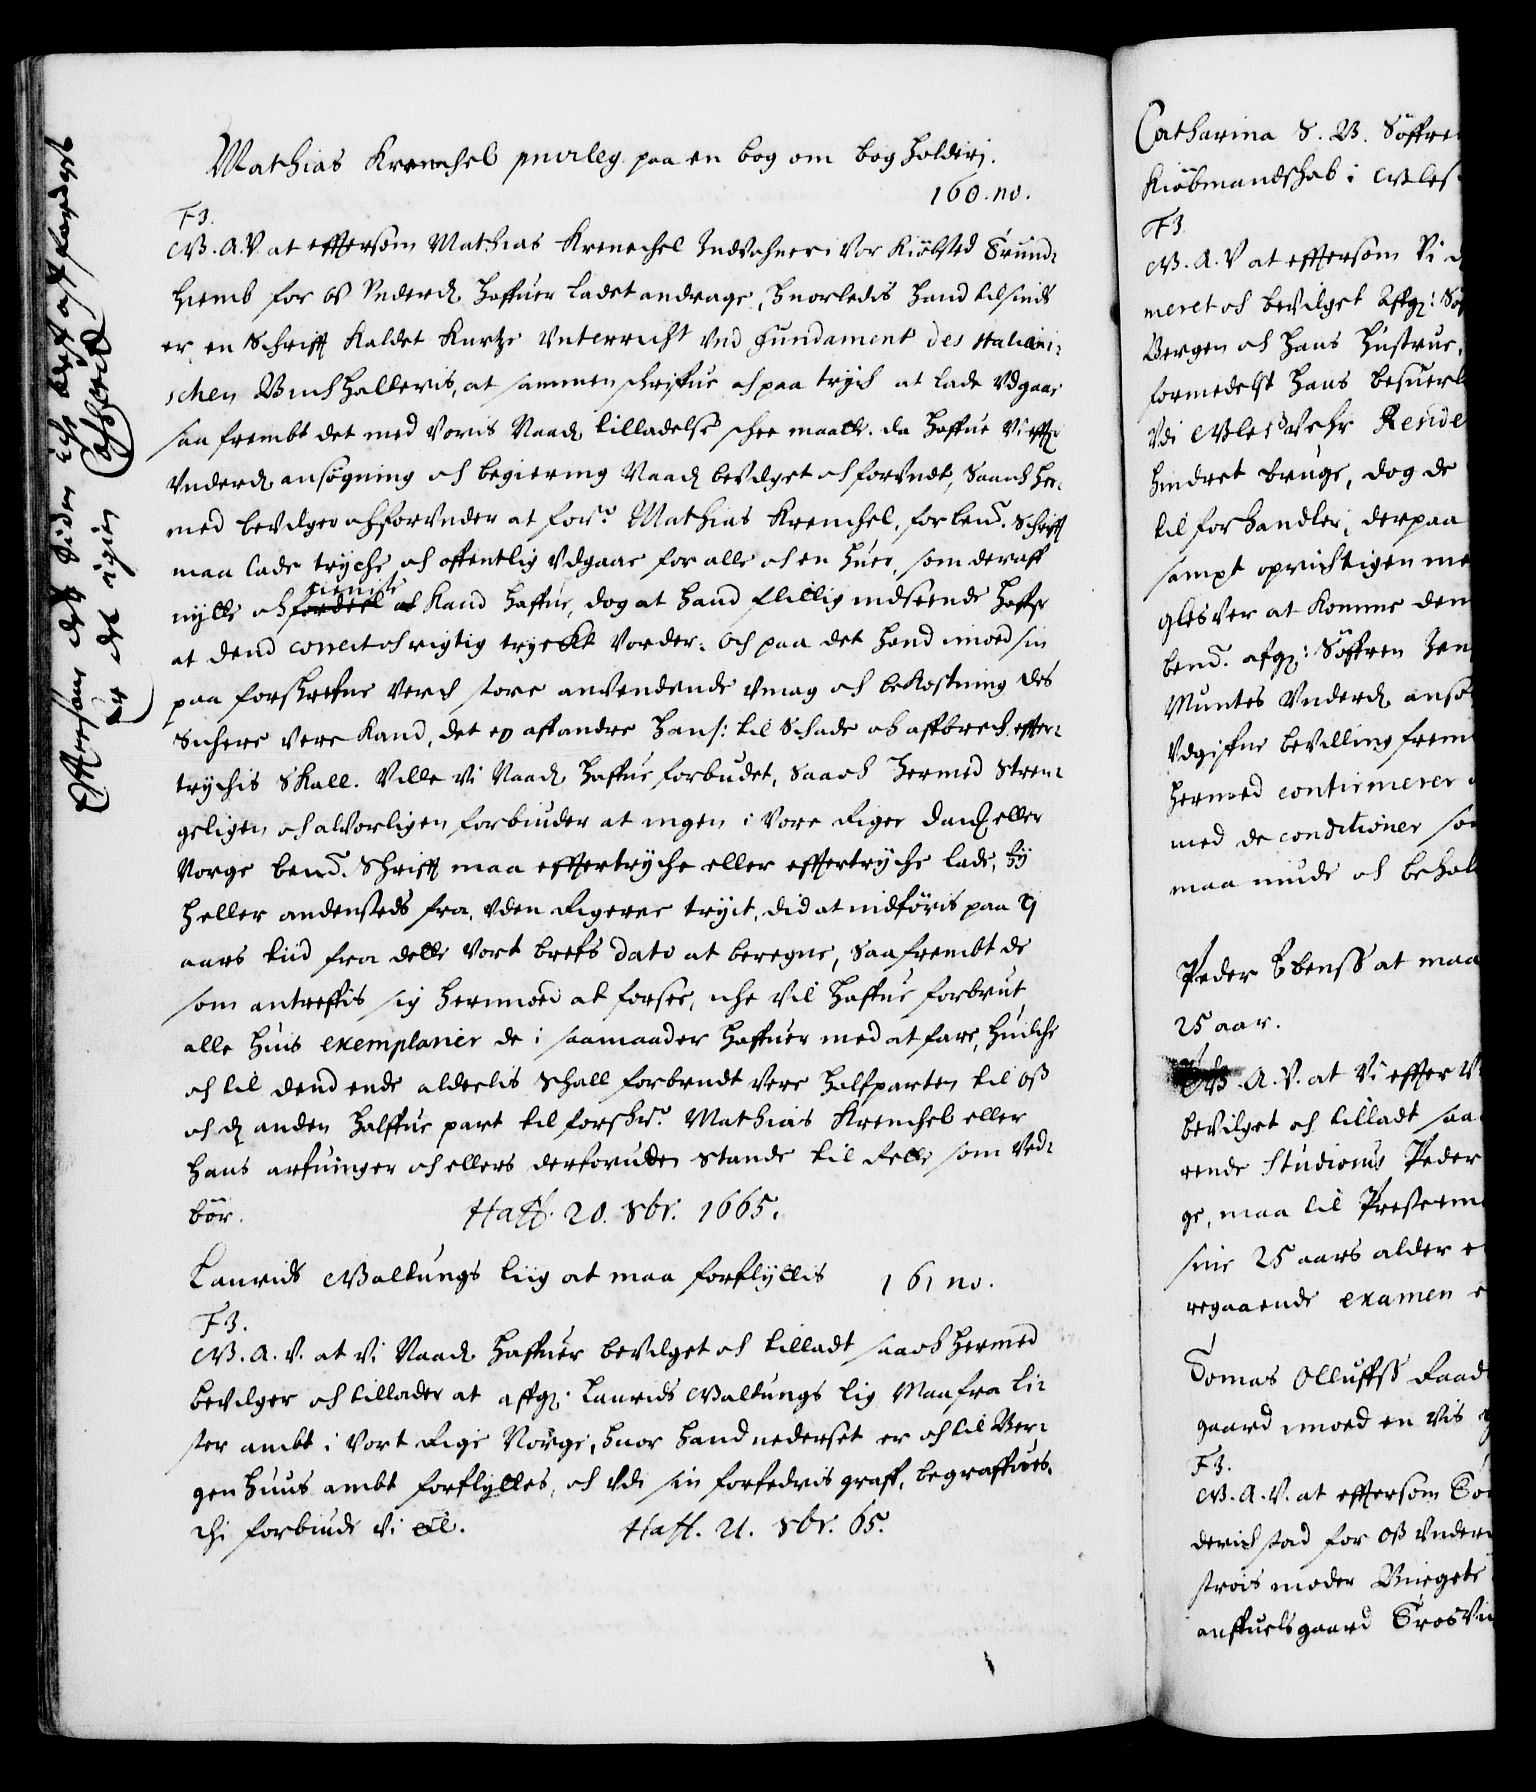 Mathias Krenchel privileg. paa en bog om bog holderj.
160. no.
F3.
G. A. V. at effterson Mathias Krenechel Indvohner i Vor Kiøbsted Trund¬
hiemb for oß Underd. haffuer ladet andrage, huorledis hand tilsinds
er en Schrifft kaldet Kurtze Unterricht und Fundament des Italiani¬
schen Buchhalteris, at sammenschrifue och paa tryck at lade Udgaae
saa frembt det med Voris Naad. tilladelse schee maatte. da haffue Vi effter
Underd. ansøgning och begiering Naad. bevilget och forundt, Saa och her¬
med bevilger och forunder at forn. Mathias Krenchel, forbend. Schrifft
maa lade tryche och offentlig Udgaae for alle och en huer, som deraff
nytte och tieniste kand haffue, dog at hand flittig indseende haffr
at dend correct och rigtig tryckt Vorder. Och paa det hand imod sin
paa forskrefne Verch store anvendende Umag och bekostning des
Sichere Vere kand, det ey aff andre hans: til Schade och affbrech effter¬
trychis Skall. Ville Vi Naad. haffue forbudet, Saa och hermed Stren¬
geligen och alvorligen forbiuder at ingen i Vore Riger Danm. eller
Norge bend. Schrifft maa effertryche eller effertryche lade, Ey
heller andensteds fra, uden Rigerne tryct, did at indføris paa
aars tid fra dette Vort brefs dato at beregne, Saa frembt de
som antreffis sig hermod at forsee, iche Vil haffue forbrut
alle huis exemplarier de i saamaader haffuer med at fare, huilche
och til dend ende aldelis Schall forbrudt Vere halfparten til oß
och d. anden halffue part til forschr. Mathias Krenchel eller
hans arfuinger och ellers derforuden Stande til Rette som Ved¬
bør. Haff. 20. 8br. 1665.
Laurids Galtungs liig at maa forflyttis 161 no.
F3.
G. A. V. at Vi Naad. haffuer bevilget och tilladt saa och hermed
bevilger och tillader at affg. Laurids Galtungs lig Maa fra Li¬
ster ambt i Vort Rige Norge, huor hand nedersat er och til Ber¬
genhuus ambt forflyttes, och Udi sin forfedris graff, begraffues.
Thi forbiude Vi etc. Haff. 21. 8br. 65.
Effterson dette siden iche bleff afferdiget
er det igien Casserit
Catharina S. B. Søffre
Kiøbmandschab i
F3
G. A. V at effterson Vi
meret och bevilget Affg:
Bergen och hans hustrue,
formedelst hans besuer
Udi
hindret bruge, dog de
til forhandler, derpaa
sampt oprichtigen me
at komme den
bend. afg: Søffren Jen
Muntes Underd. ansø
Udgifne bevilling frem
hermed confirmerer
med de conditioner som
maa niude och behol
Peder Ebenss at maa
25 aar.
G. A. V. at Vi effter
bevilget och tilladt saa
rende Studiosus Peder
ge, maa til Prestem
sine 25 aars alder
regaaende examen
Tomas Olluffss Raad
gaard imod en Vis
F3.
G. A. V. at effterson
derichstad for oß Under
moder
gaard